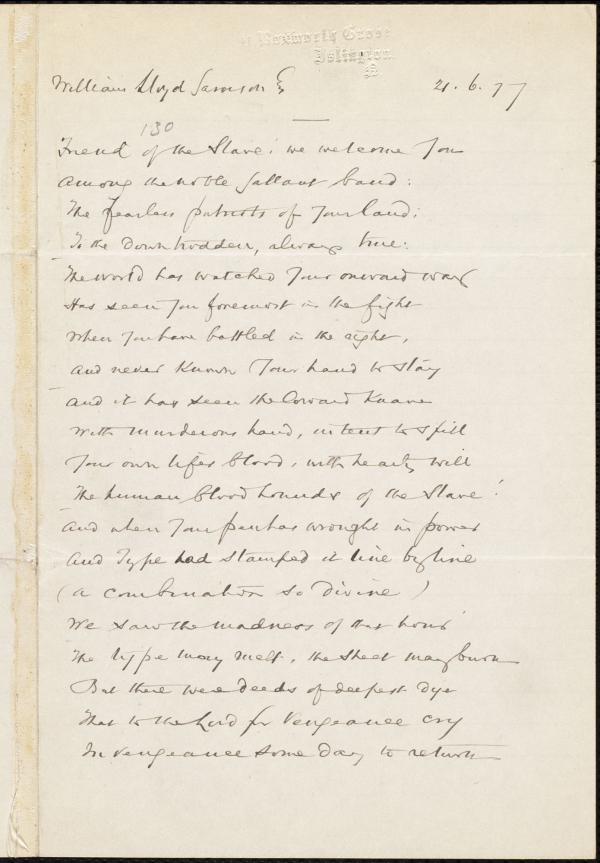 Roxworth Grove
Islington
William Lloyd Garrison Esq 21. 6. 77
130
Friend of the Slave! we welcome You
Among the noble gallant band:
The fearless patriots of Your land:
To the Downtrodden, always true:
The world has watched Your onward way
Has seen You foremost in the fight
When You have battled in the right,
And never Known Your hand to stay
And it has seen the Coward Knave
With murderous hand, intent to spill
Your own lifes blood, with hearty will
The human blood hounds of the Slave!
And when Your pen has wrought in power
And Type had stamped it line by line
(a combination so Divine)
We saw the madness of that hour
The type may melt, the sheet may burn
But there were deeds of deepest dye
That to the Lord for Vengeance cry
In vengeance some Day to return